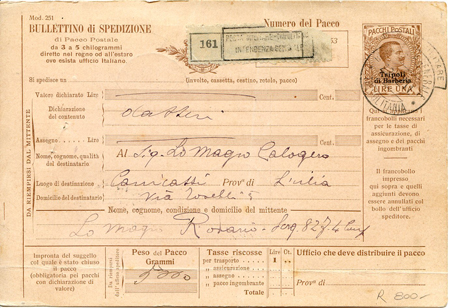 Mod. 251
BULLETTINO di SPEDIZIONE
di Pacco Postale
da 3 a 5 chilogrammi
diretto nel regno od all'estero
ove esista ufficio Italiano.
Numero del Pacco
161
POSTA MILITARE
INTENDENZA
53
PACCHI POSTALI
Tripoli
di Barberia
LIRE UNA
Si spedisce un (involto, cassetta, cestino, rotolo, pacco)
Valore dichiarato Lire Cent.
Dichiarazione
del contenuto
datteri
Assegno Lire Cent.
Nome, cognome, qualità
del destinatario
Al Sig. Lo Magro Calogero
Luogo di destinazione
Canicattì Prov^a di
Domicilio del destinatario
Via
Nome, cognome, condizione e domicilio del mittente
Lo Magro Rosario
DA RIEMPIRSI DAL MITTENTE
I
francobolli necessari
per le tasse di
assicurazione,
di assegno e dei pacchi
ingombranti
Il francobollo
impresso
qui sopra e quelli
aggiunti devono
essere annullati
col bollo dell'ufficio
speditore.
Impronta del suggello
col quale è stato chiuso
il pacco
(obbligatoria pei pacchi
con dichiarazione di
valore)
Peso del Pacco
Grammi
5000
Tasse riscosse
per trasporto
assicurazione
assegno
pacco ingombrante
Totale
Lire Ct.
1
Ufficio che deve distribuire il pacco
R 800